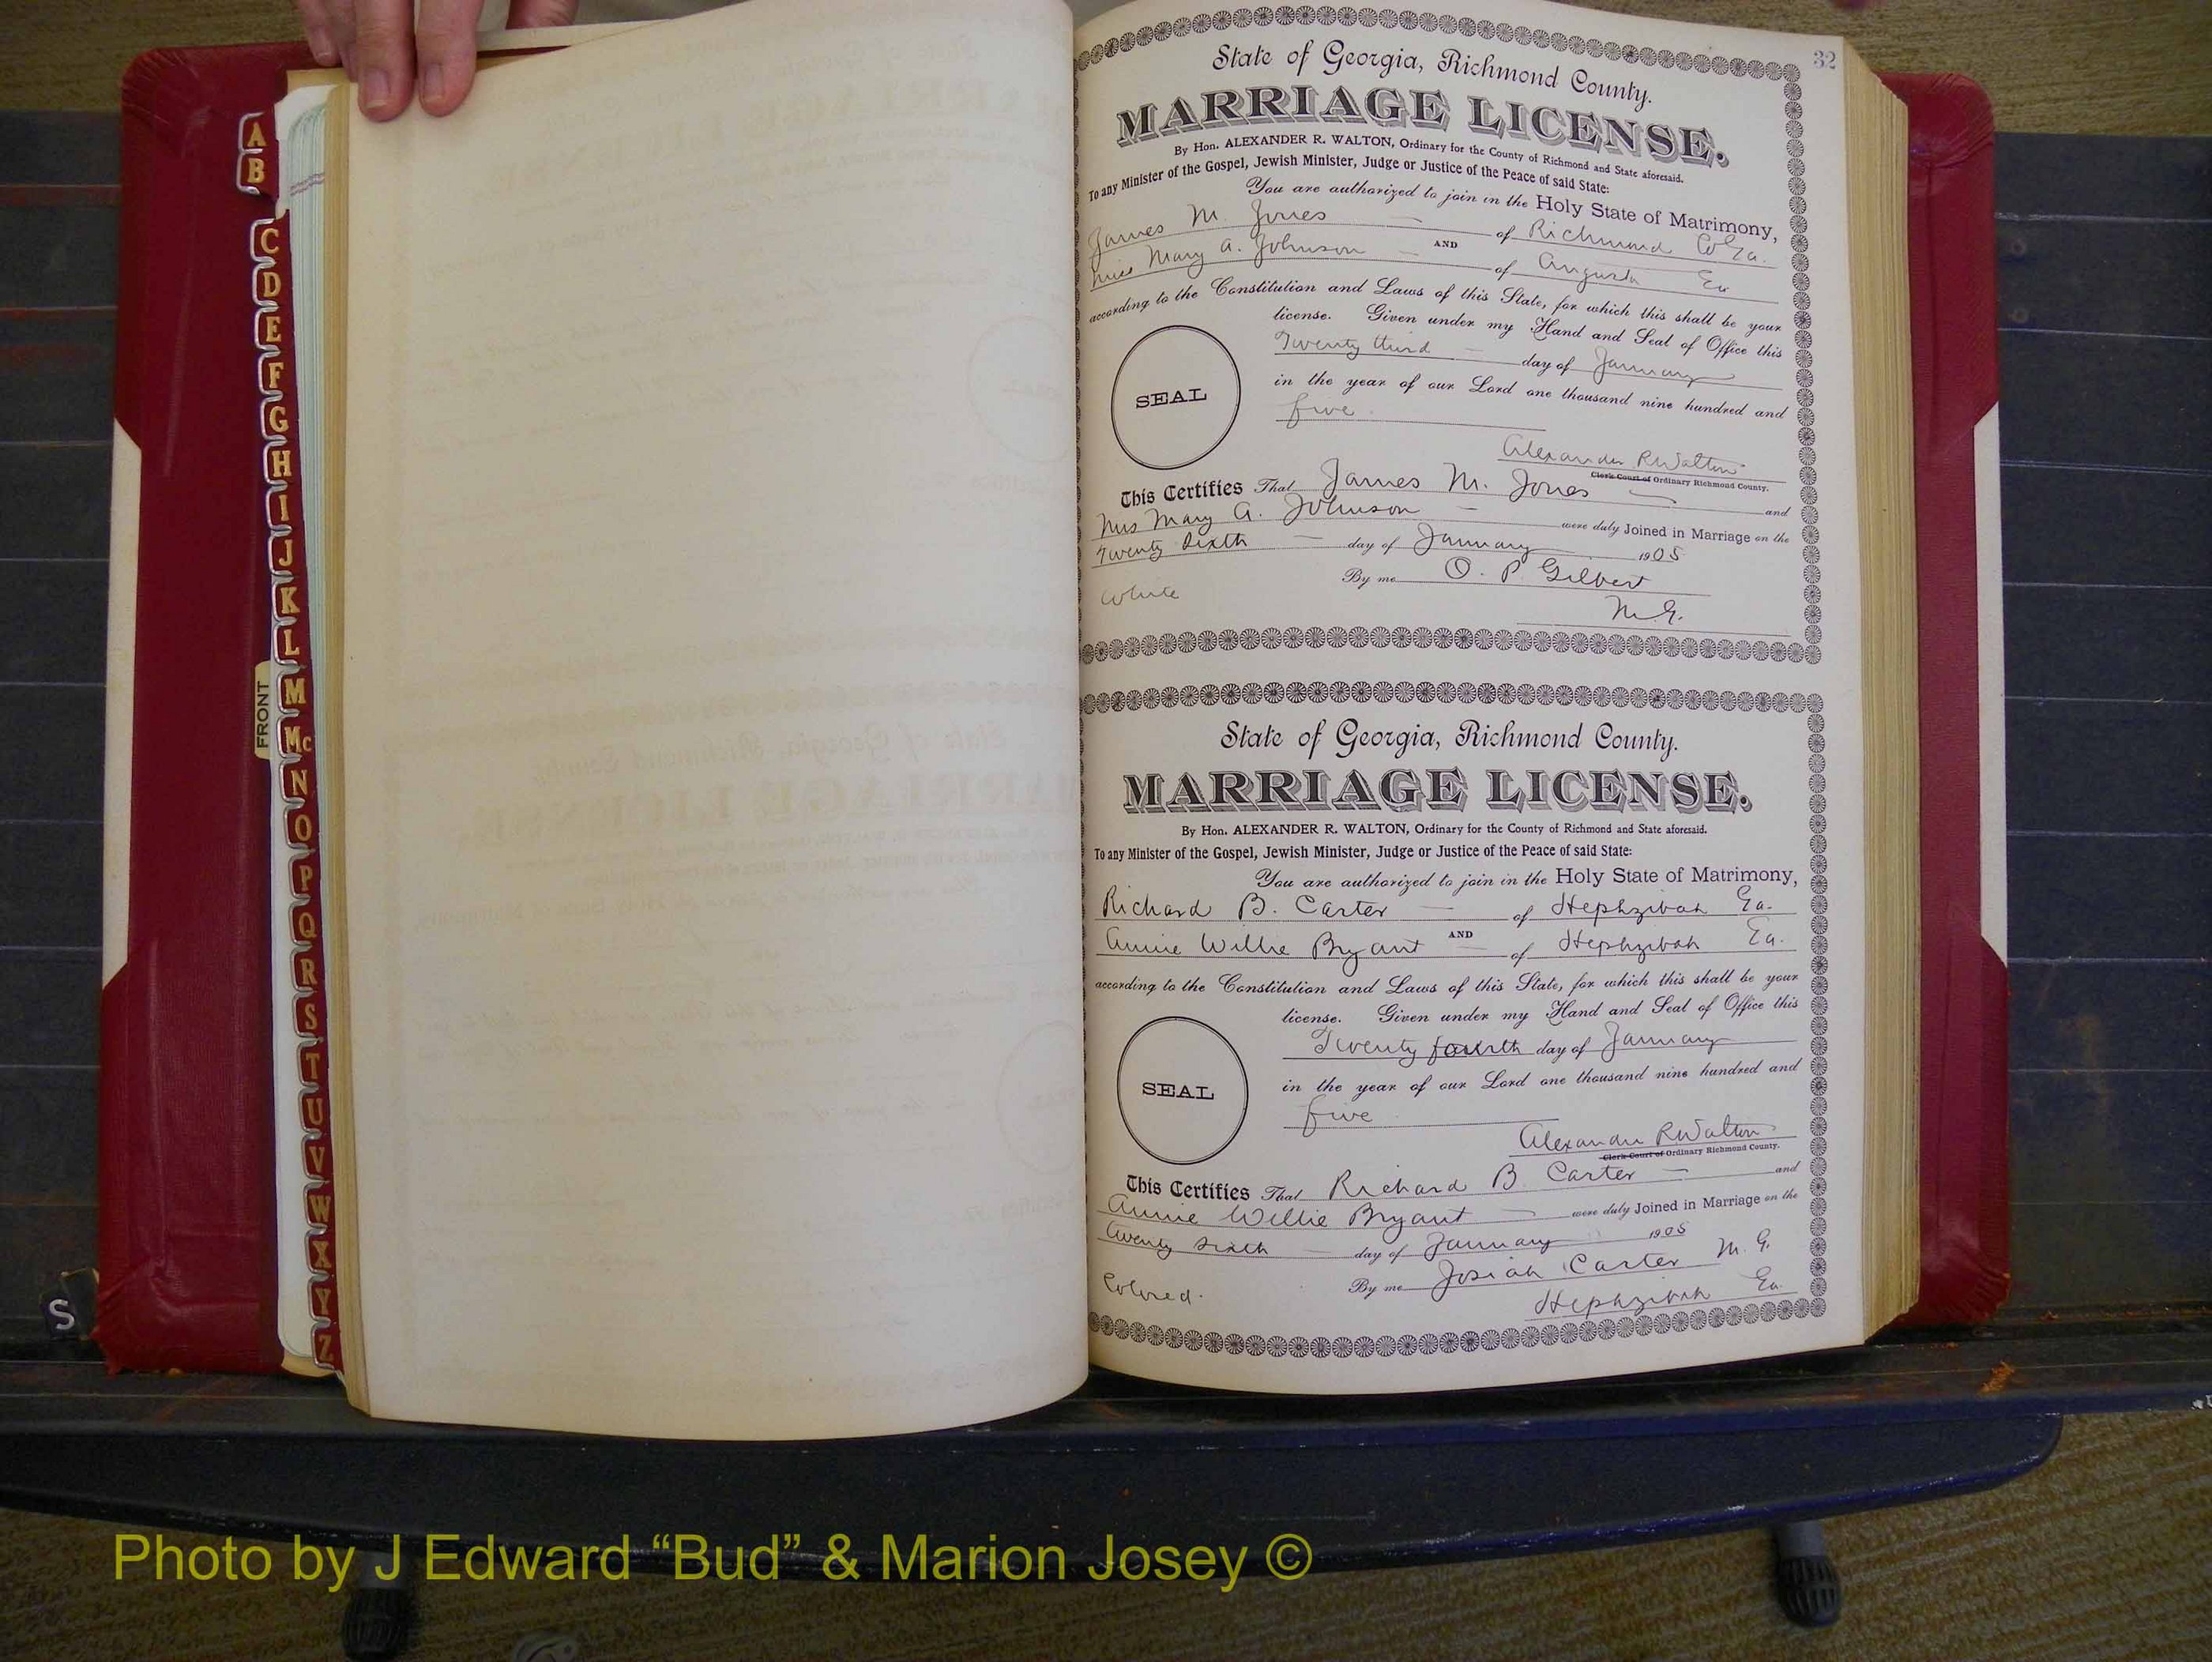 32
State of Georgia, Richmond County.
MARRIAGE LICENSE.
By Hon. ALEXANDER R. WALTON, Ordinary for the County of Richmond and State aforesaid.
To any Minister of the Gospel, Jewish Minister, Judge or Justice of the Peace of said State:
You are authorized to join in the Holy State of Matrimony,
James M. Jones of Richmond Co Ga.
AND
Miss Mary A. Johnson of Augusta Ga
according to the Constitution and Laws of this State, for which this shall be your
license. Given under my Hand and Seal of Office this
Twenty third day of January
in the year of our Lord one thousand nine hundred and
five
SEAL
Alexander R Walton
Clerk Court of Ordinary Richmond County.
This Certifies That James M. Jones and
Miss Mary A. Johnson were duly Joined in Marriage on the
Twenty Sixth day of January 1905
By me O. P. Gilbert
White
M. G.
State of Georgia, Richmond County.
MARRIAGE LICENSE.
By Hon. ALEXANDER R. WALTON, Ordinary for the County of Richmond and State aforesaid.
To any Minister of the Gospel, Jewish Minister, Judge or Justice of the Peace of said State:
You are authorized to join in the Holy State of Matrimony,
Richard B. Carter of Hephzibah Ga.
AND
Annie Willie Bryant of Hephzibah Ga.
according to the Constitution and Laws of this State, for which this shall be your
license. Given under my Hand and Seal of Office this
Twenty fourth day of January
in the year of our Lord one thousand nine hundred and
five
SEAL
Alexander R Walton
Clerk Court of Ordinary Richmond County.
This Certifies That Richard B. Carter and
Annie Willie Bryant were duly Joined in Marriage on the
Twenty Sixth day of January 1905
By me Josiah Carter M. G.
Colored.
Hephzibah Ga.
A
B
C
D
E
F
G
H
I
J
K
L
M
Mc
N
O
P
Q
R
S
T
U
V
W
X
Y
Z
FRONT
S
Photo by J Edward “Bud” & Marion Josey ©